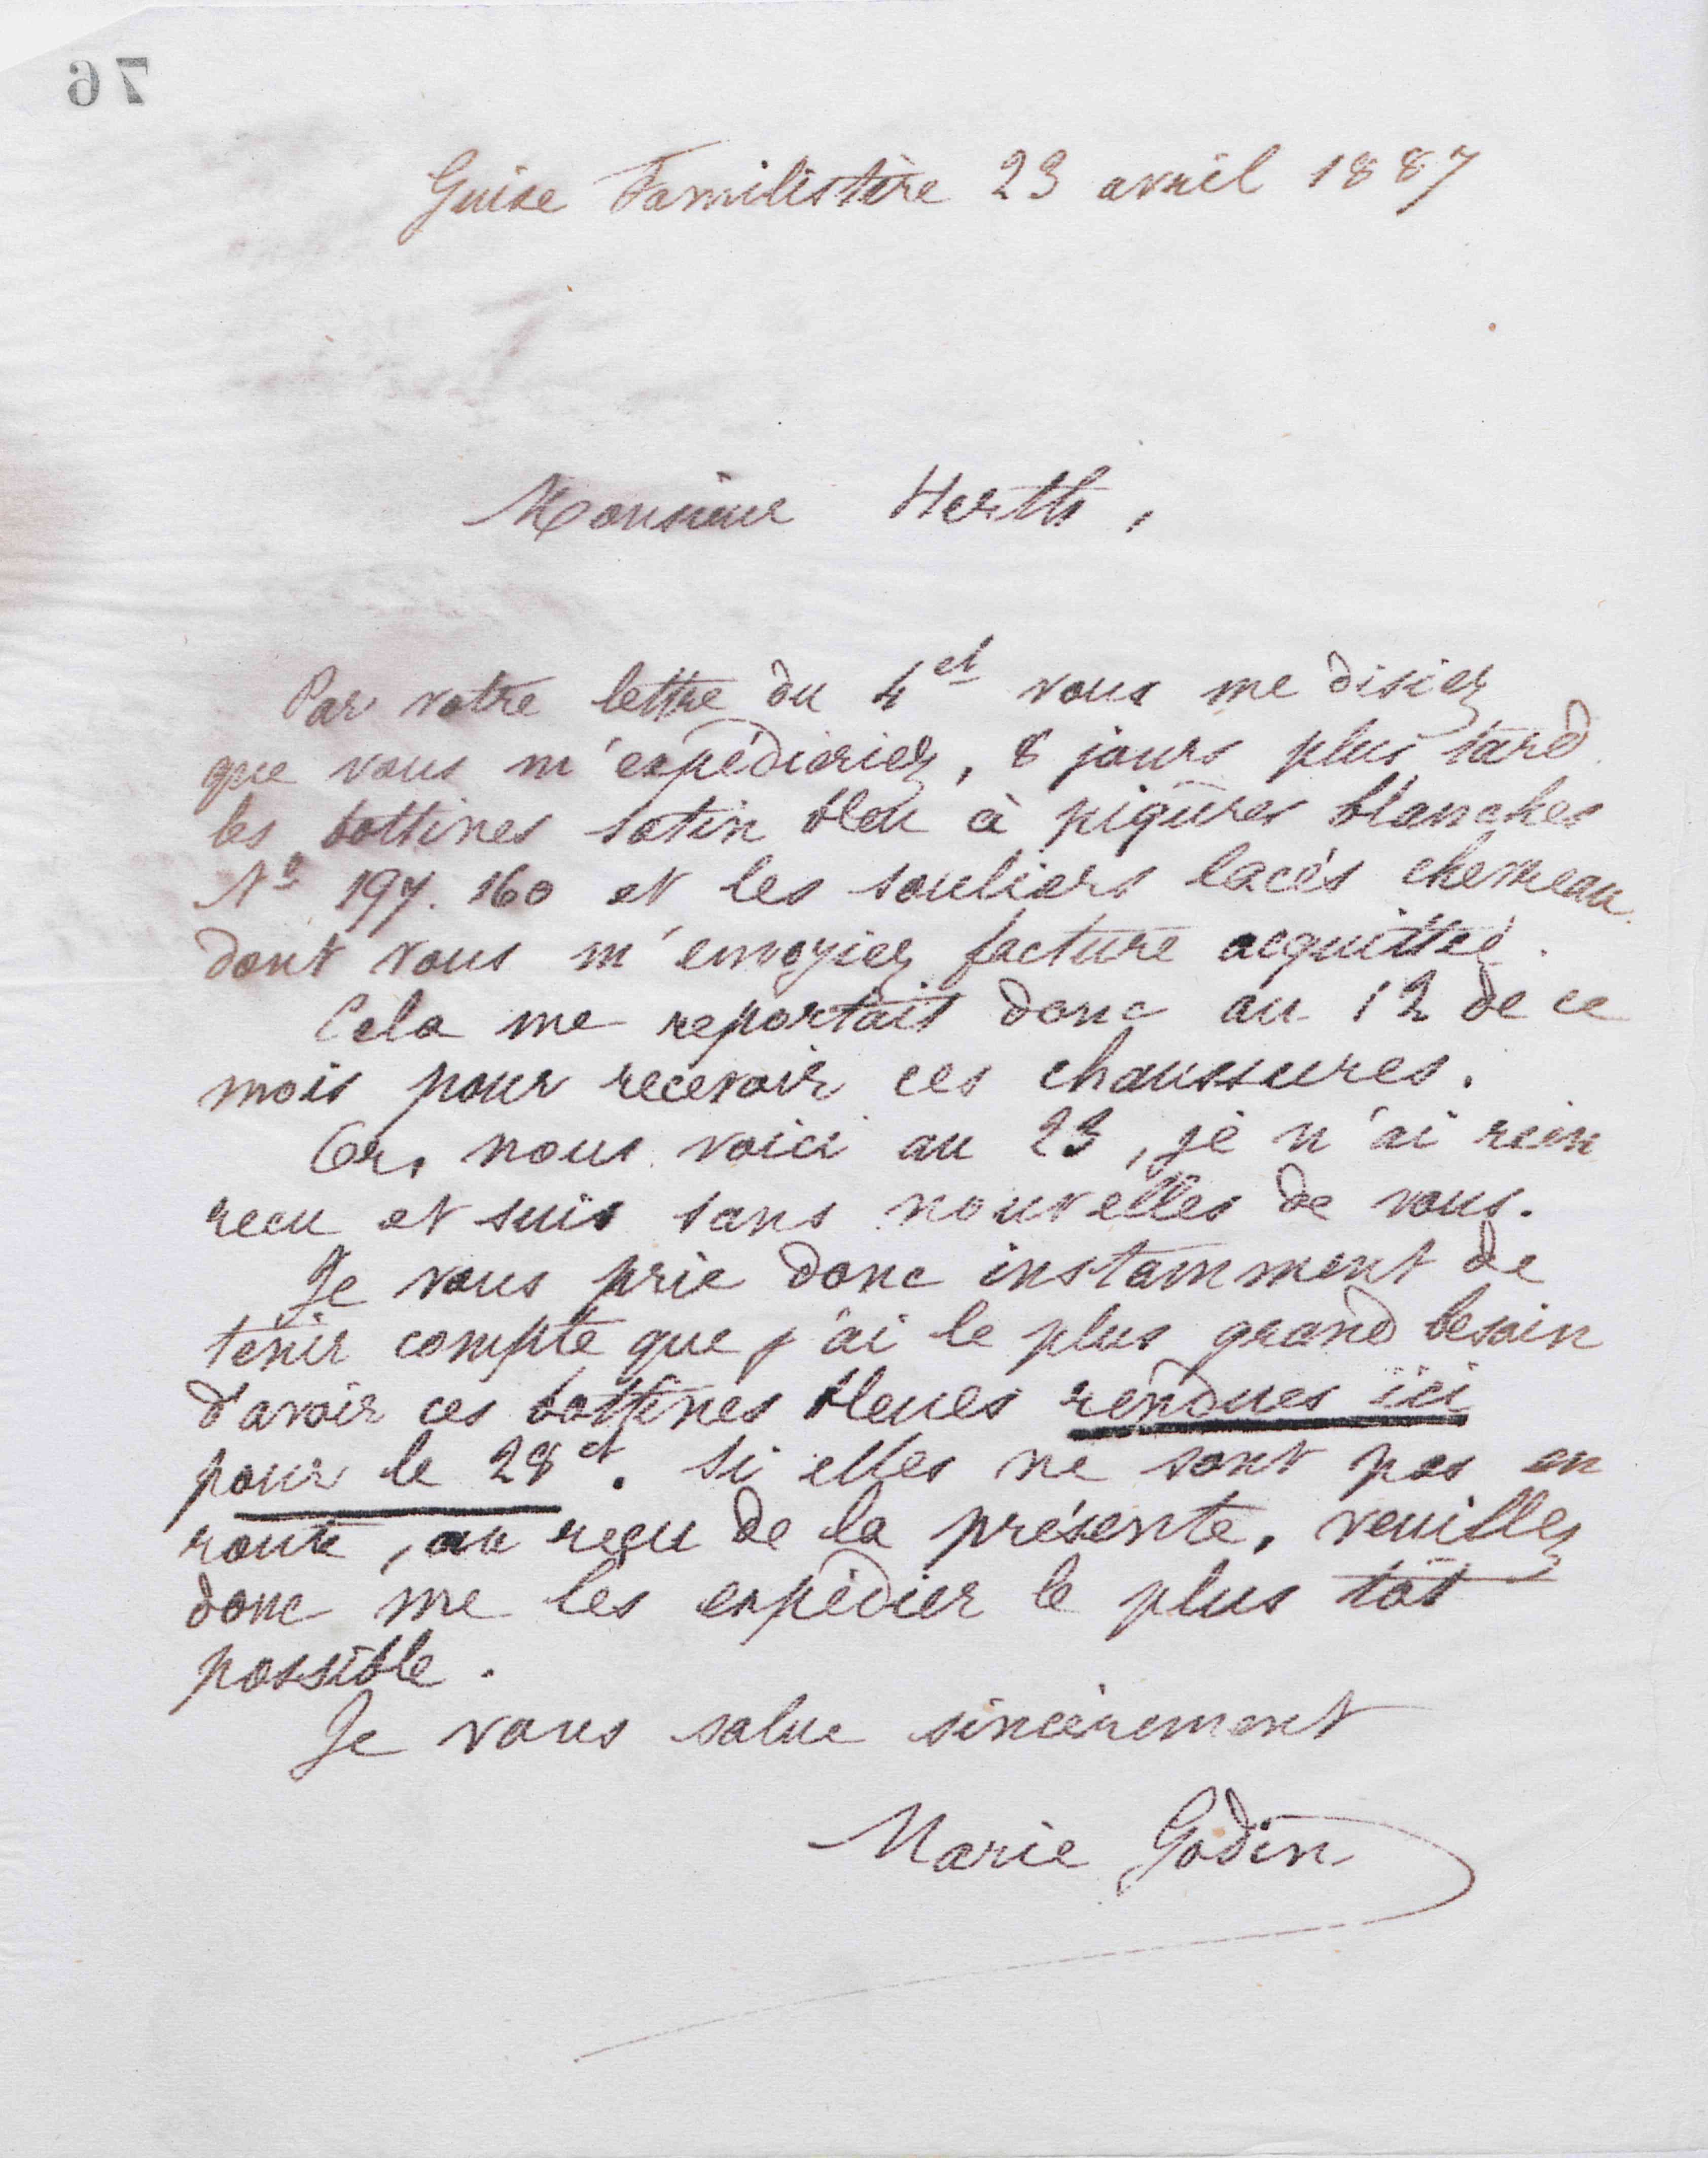 76
Guise Familistère 23 avril 1887
Monsieur Herth,
Par votre lettre du 4 ct vous me disiez
que vous m'expédieriez, 8 jours plus tard
les bottines satin bleu à piqûres blanches
No 197.160 et les souliers lacés chevreau
dont vous m'envoyiez facture acquittée.
Cela me reportait donc au 12 de ce
mois pour recevoir ces chaussures.
Or, nous voici au 23, je n'ai rien
recu et suis sans nouvelles de vous.
Je vous prie donc instamment de
tenir compte que j'ai le plus grand besoin
d'avoir ces bottines bleues rendues ici
pour le 28 ct. Si elles ne sont pas en
route, au reçu de la présente, veuillez
donc me les expédier le plus tôt
possible.
Je vous salue sincèrement
Marie Godin